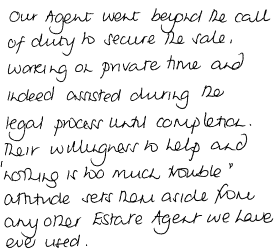 Our Agent went beyond the call
of duty to secure the sale,
working on private time and
indeed assisted during the
legal process until completion.
Their willingness to help and
"nothing is too much trouble"
attitude sets them aside from
any other Estate Agent we have
ever used.